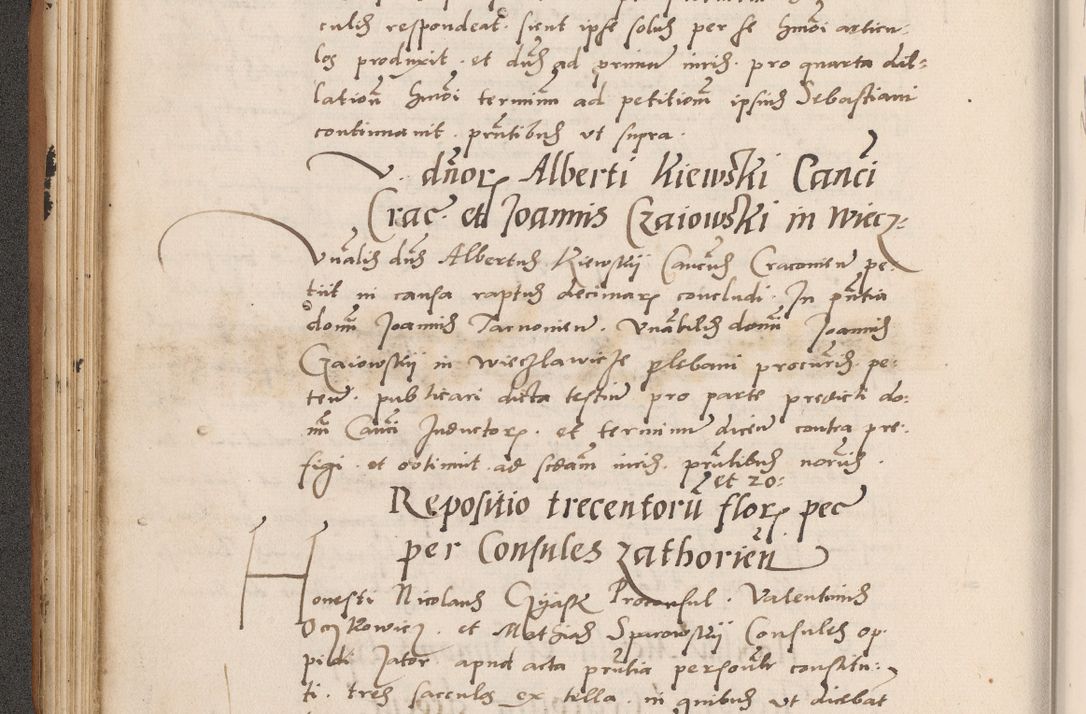 culis respondeat. sicut ipse solus per se hmoi articu-
los produxit. et dns ad primum iuris. pro quarta dil-
lation hmoi terminum ad petitionem ipsius Sebastiani
continuavit. pntibus ut supra.
V. dnor Alberti Kiewski Canci
Crac. et Joannis Czaiowski in Wiecz-
Vnalis dns Albertus Kiewskij Cancus Cracovien pe-
tiit in causa raptus decimar concludi. In pntia
domi Joannis Tarnovien. Vnabilis domi Joannis
Czaiowskij in Wieczlawicze plebani procuris pe-
ten. publicari dicta testium pro parte predicti do-
mi Canci Inductor. et terminum dicen contra pre-
figi. et obtinuit ad scdam iuris. pntibus noriis.
Repositio trecentoru et 20 flor pec
per Consules Zathorien
Honesti Nicolaus Gijask Proconsul. Valentinus
Oczkowicz. et Mathias Spurowskij Consules op-
pidi Zator apud acta pntia personalr constitu-
ti. tres sacculos ex tella. in quibus ut dicebat